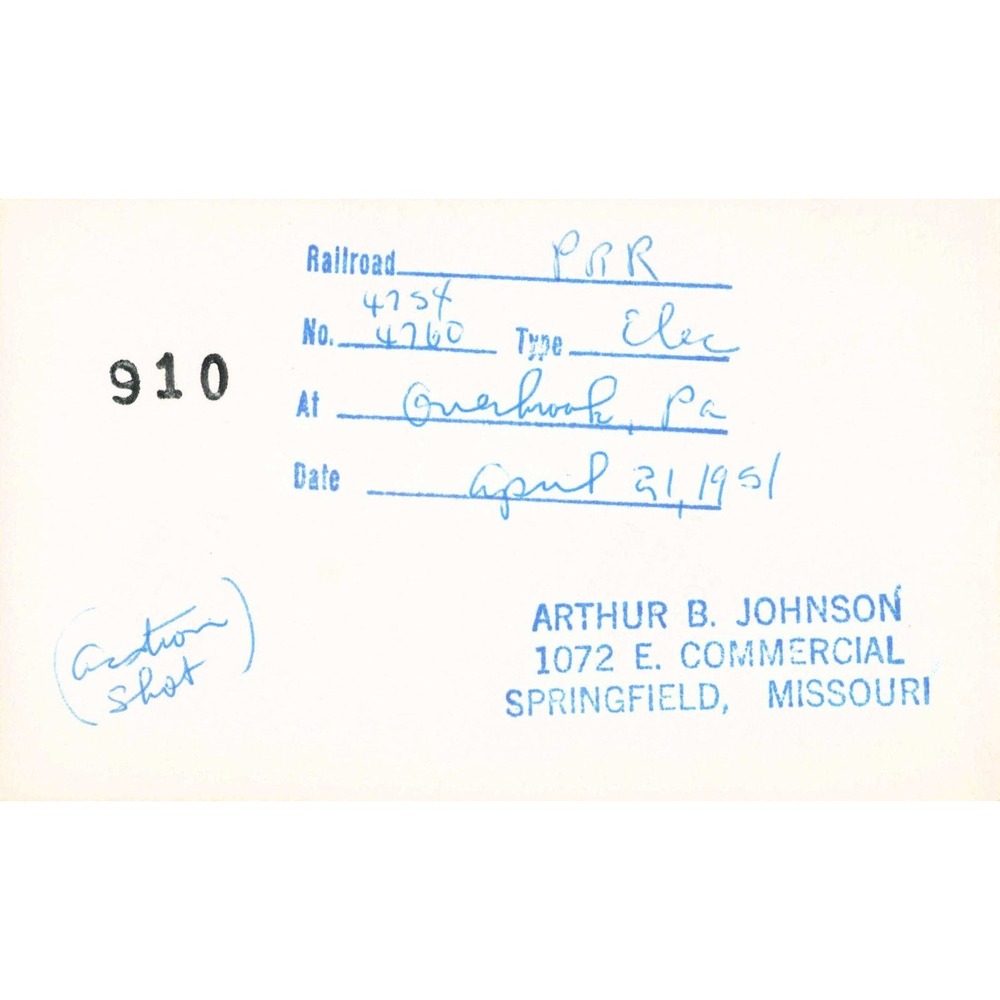 Railroad PRR
4754
No. 4760 Type Elec
910
At Overbrook, Pa
Date April 21, 1951
(action
shot)
ARTHUR B. JOHNSON
1072 E. COMMERCIAL
SPRINGFIELD, MISSOURI